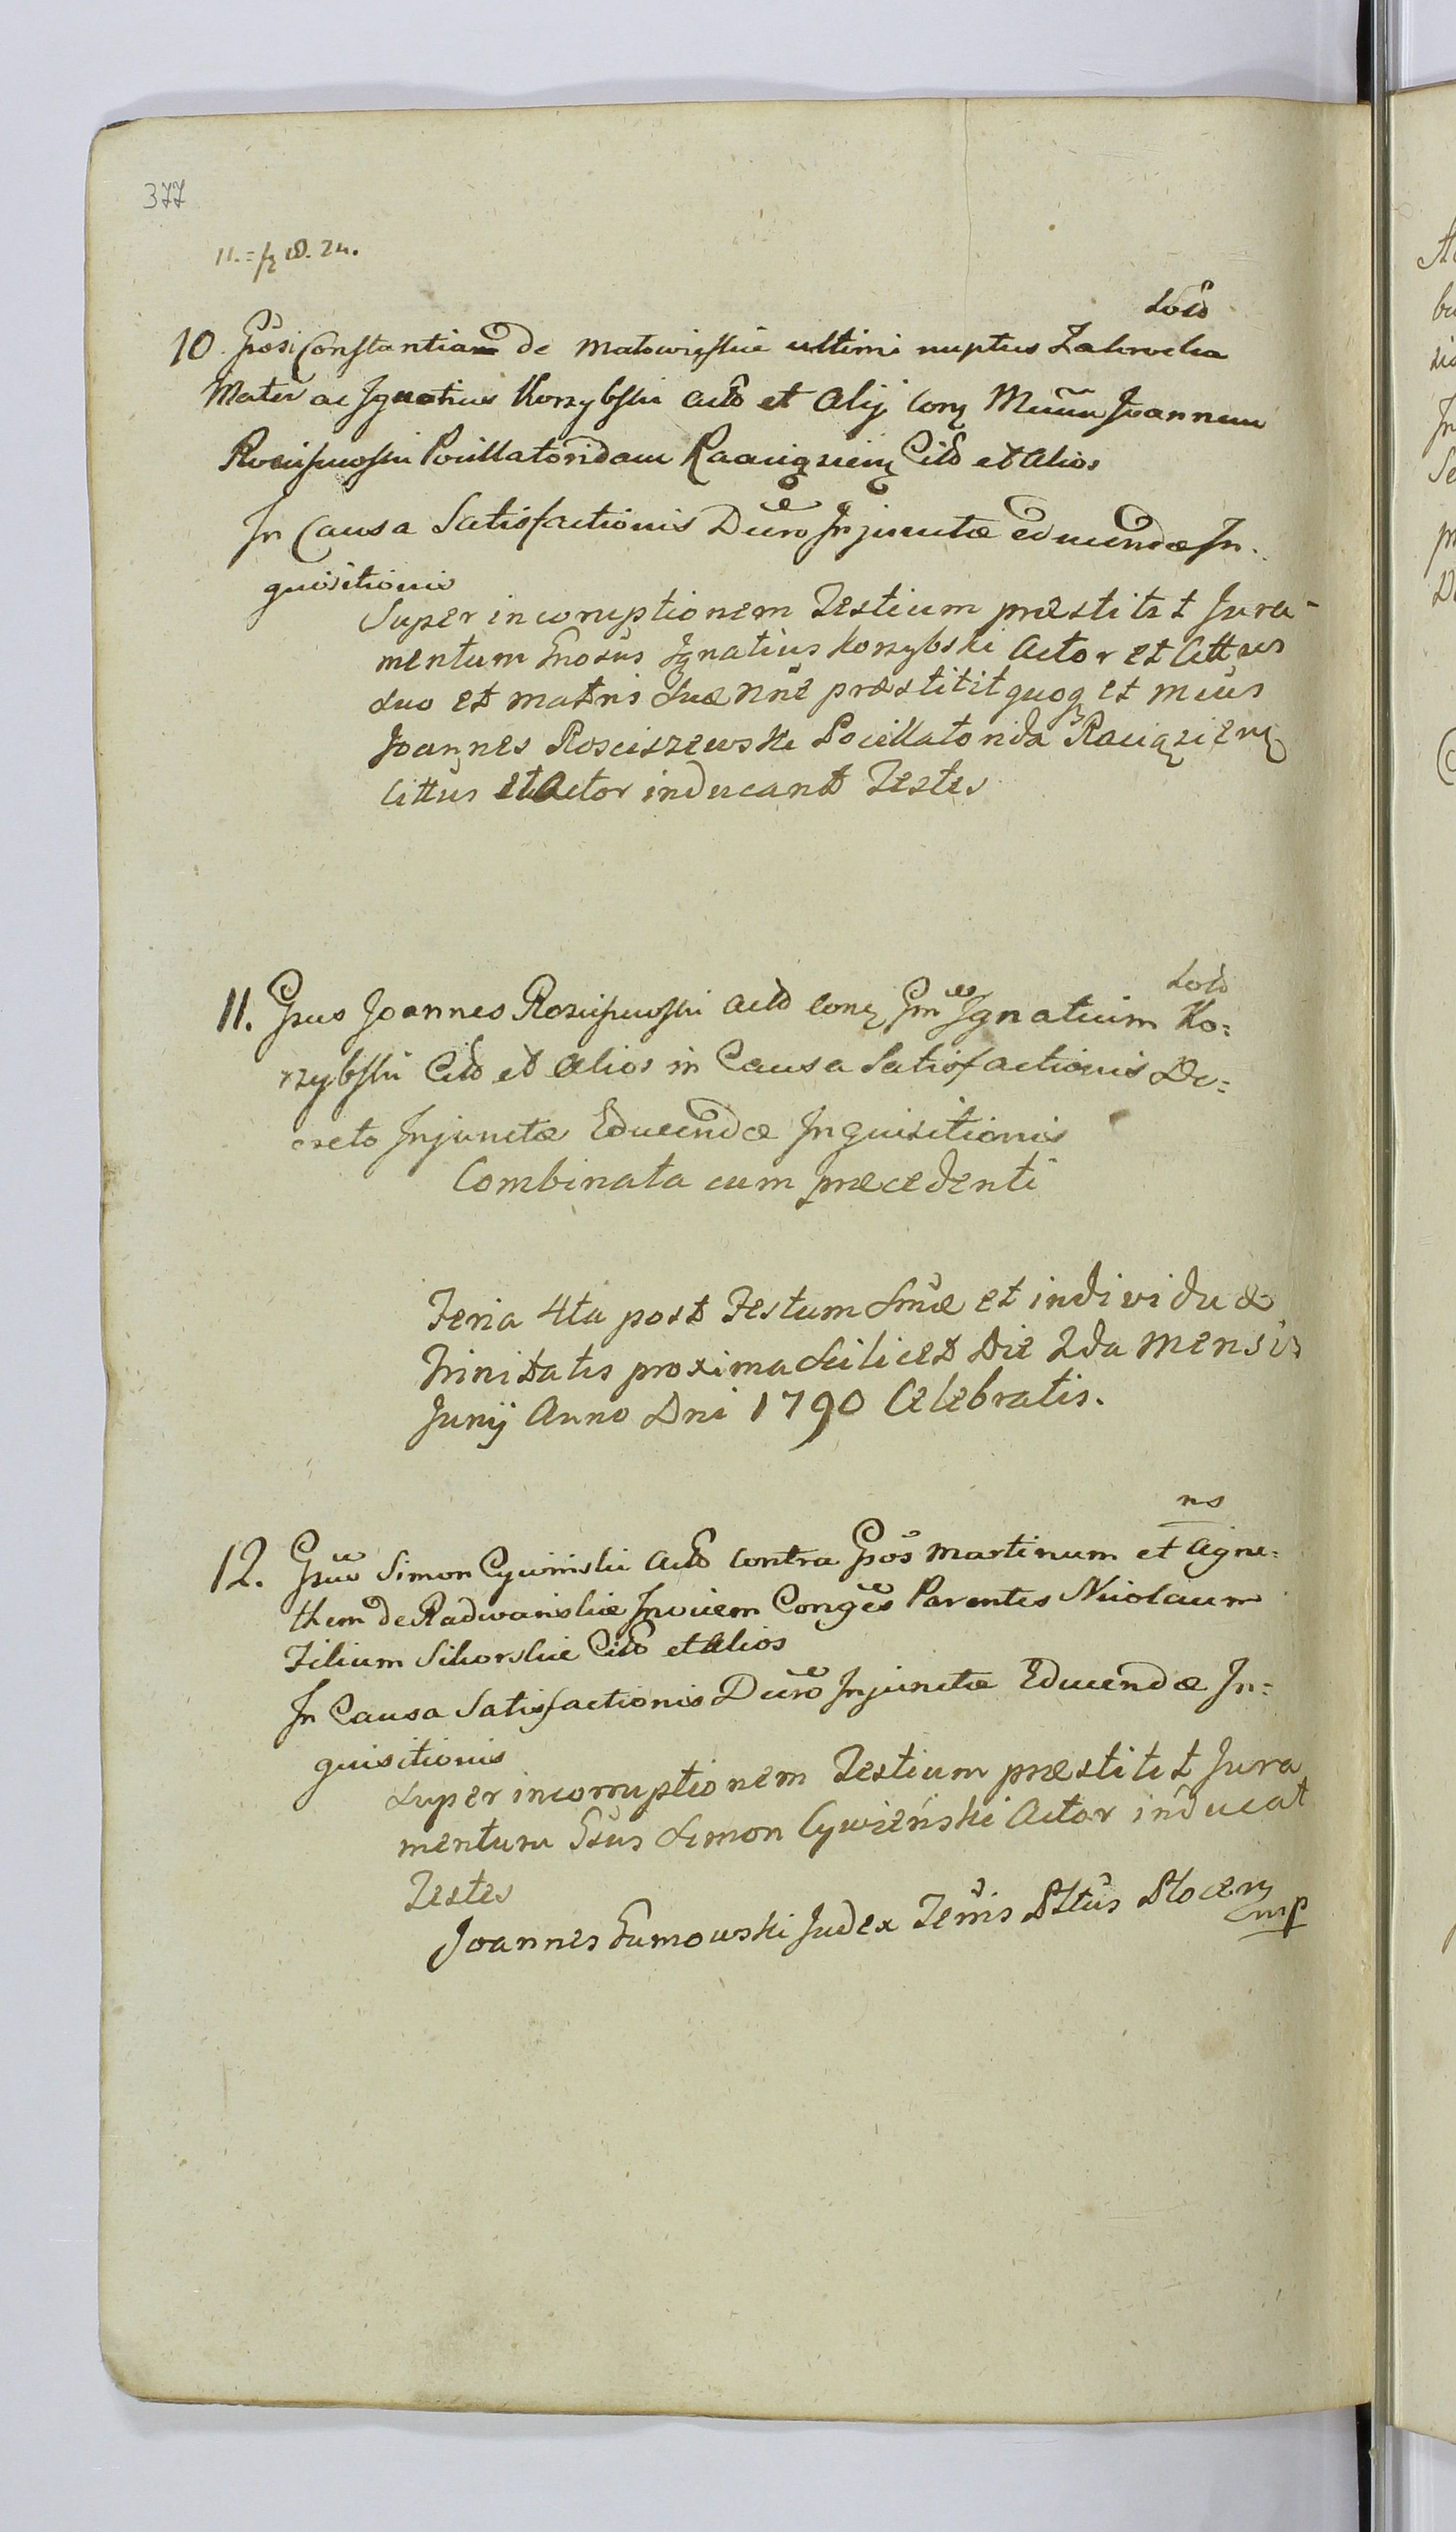 377
10 Gnosi Constantiam de Matowieskie ultimi nuptus Zakrocka
Mater ac Ignatius Korzybski Acto et Alij Conq Mcum Joannem
Roscisewski Pocillatoridam Raciązien Citô et Alios
In Causa Satisfactionis Decro Injunctæ educendæ In-
quisitionis
Super incorruptionem Testium præstitit Jura-
mentum Gnosus Ignatius Korzybski Actor et Cittus
suo et matris suæ nne præstitit quoq et Mcus
Joannes Rosciszewski Pocillatorida Raciązien
Cittus et Actor inducant Testes
11. Gsus Joannes Roscisewski Acto Conq Gm Ignatium Ko=
rzybski Cito et Alios in Causa Satisfactionis De=
creto Injunctæ Educendæ Inquisitionis
Combinata cum præcedenti
Feria 4ta post Festum Smæ et individuæ
Trinitatis proxima scilicet Die 2da Mensis
Junij Anno Dni 1790 Celebratis.
ns
12. Gsus Simon Cywinski Acto Contra Gsos Martinum et Agne=
them de Radwanskie Invicem Conges Parentes Nicolaum
Filium Sikorskie Cito et Alios
In Causa Satisfactionis Decro Injunctæ Educendæ In=
quisitionis
Super incorruptionem Testium præstitit Jura
mentum Gsus Simon Cywiński Actor inducat
Testes
Joannes Gumowski Judex Terris Pttus Plocen
mp